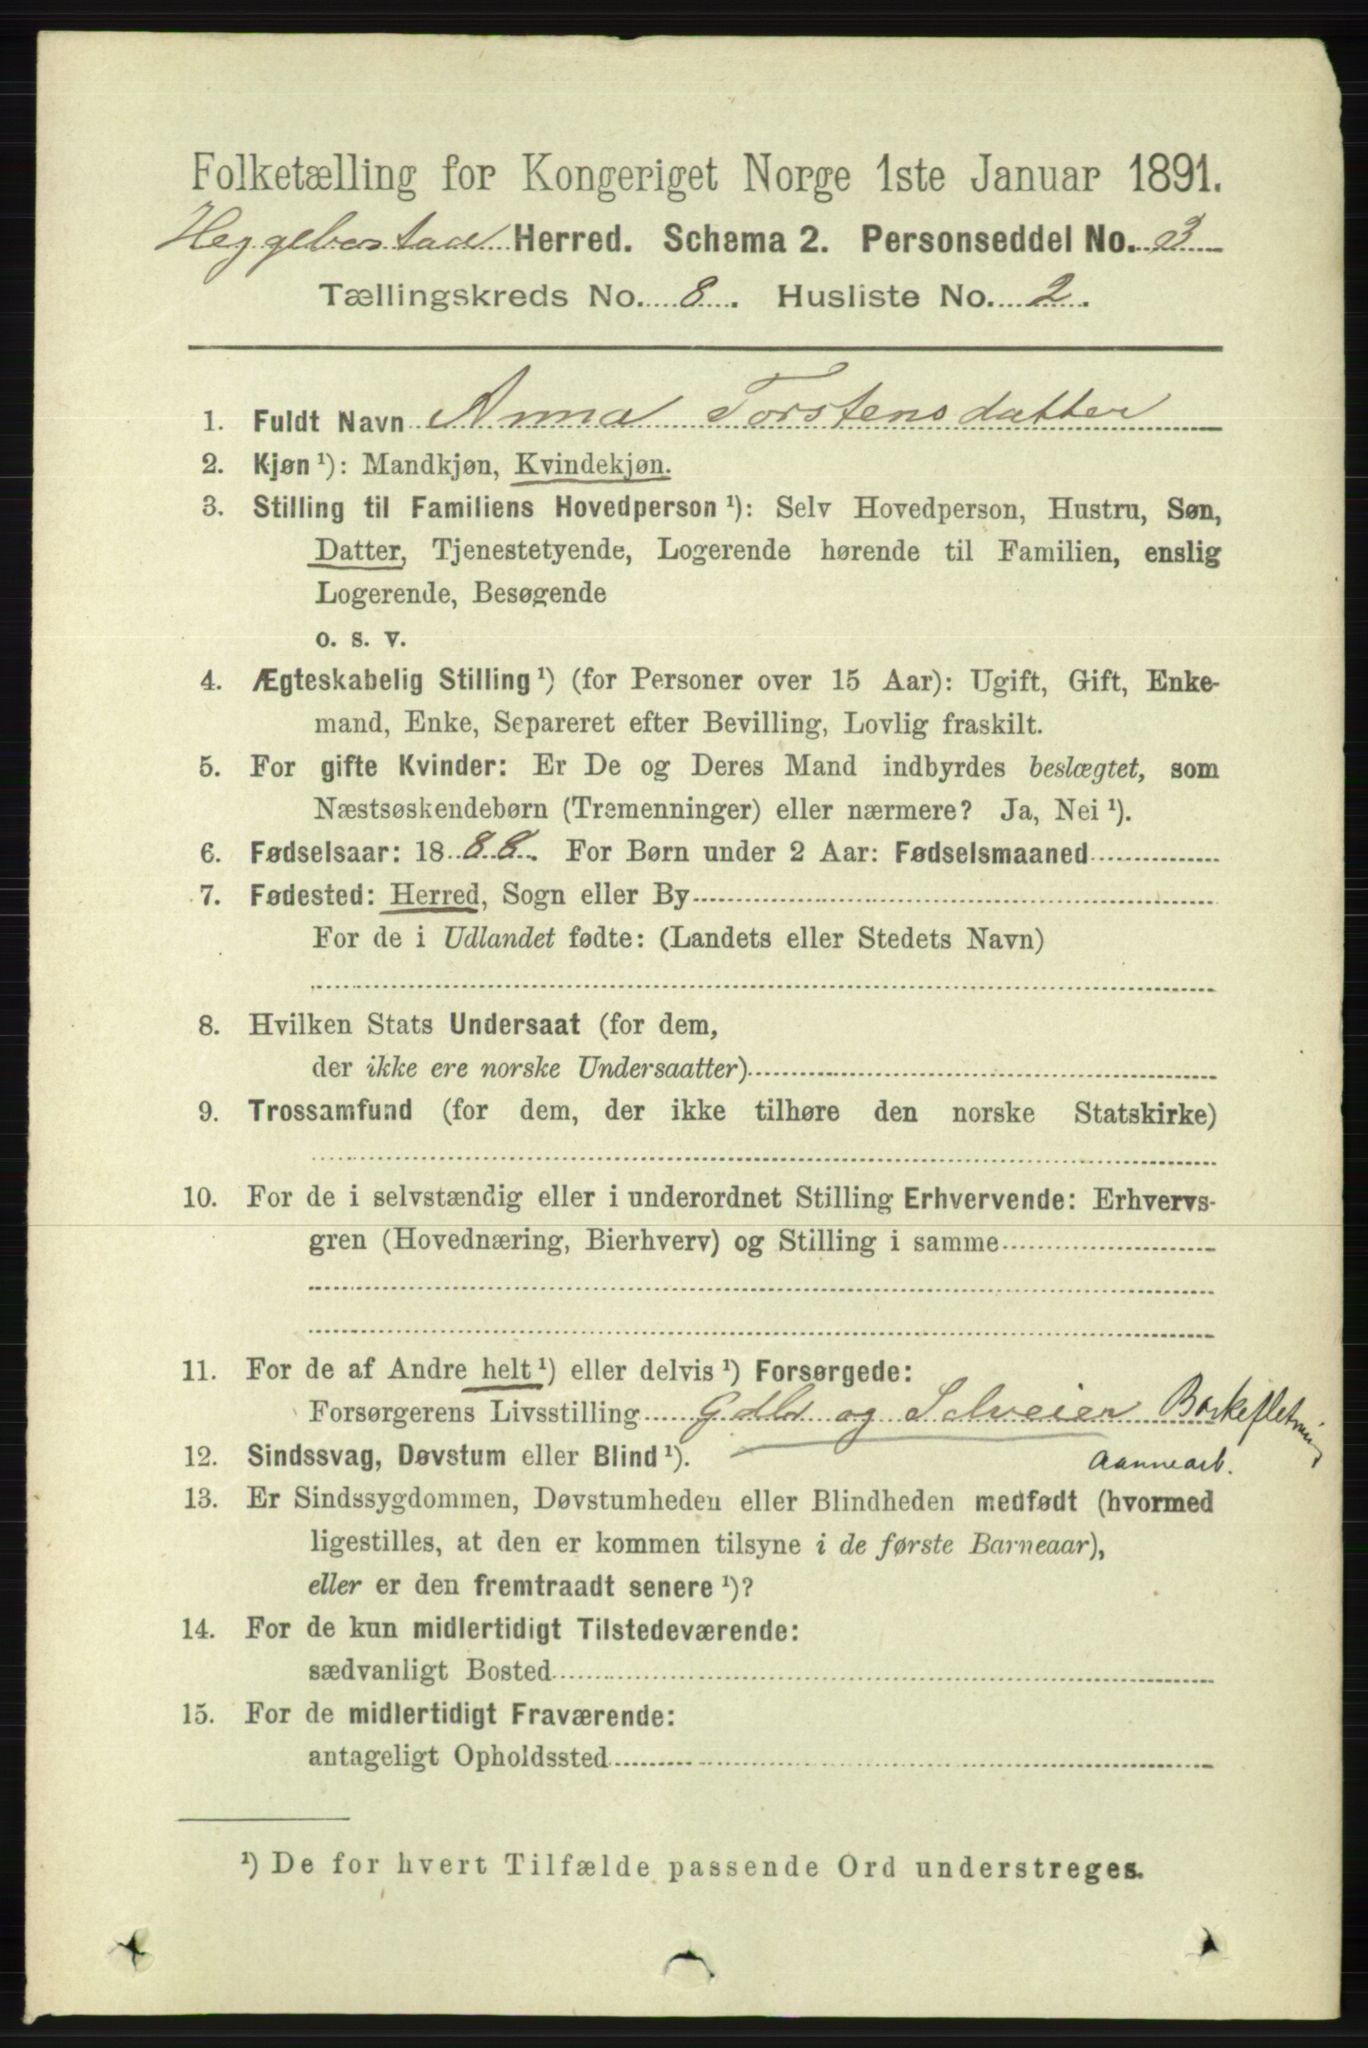 Folketælling for Kongeriget Norge 1ste Januar 1891.
Heggebostad Herred. Schema 2. Personseddel No. 3
Tællingskreds No. 8. Husliste No. 2.
1. Fuldt Navn Anna Torstensdatter
2. Kjøn ¹): Mandkjøn, Kvindekjøn.
3. Stilling til Familiens Hovedperson ¹): Selv Hovedperson, Hustru, Søn,
Datter, Tjenestetyende, Logerende hørende til Familien, enslig
Logerende, Besøgende
o. s. v.
4. Ægteskabelig Stilling ¹) (for Personer over 15 Aar): Ugift, Gift, Enke-
mand, Enke, Separeret efter Bevilling, Lovlig fraskilt.
5. For gifte Kvinder: Er De og Deres Mand indbyrdes beslægtet, som
Næstsøskendebørn (Tremenninger) eller nærmere? Ja, Nei ¹).
6. Fødselsaar: 1888. For Børn under 2 Aar: Fødselsmaaned
7. Fødested: Herred, Sogn eller By
For de i Udlandet fødte: (Landets eller Stedets Navn)
8. Hvilken Stats Undersaat (for dem,
der ikke ere norske Undersaatter)
9. Trossamfund (for dem, der ikke tilhøre den norske Statskirke)
10. For de i selvstændig eller i underordnet Stilling Erhvervende: Erhvervs-
gren (Hovednæring, Bierhverv) og Stilling i samme
11. For de af Andre helt ¹) eller delvis ¹) Forsørgede:
Forsørgerens Livsstilling Gdbr og Selveier
12. Sindssvag, Døvstum eller Blind ¹).
13. Er Sindssygdommen, Døvstumheden eller Blindheden medfødt (hvormed
ligestilles, at den er kommen tilsyne i de første Barneaar),
eller er den fremtraadt senere ¹)?
14. For de kun midlertidigt Tilstedeværende:
sædvanligt Bosted
15. For de midlertidigt Fraværende:
antageligt Opholdssted
¹) De for hvert Tilfælde passende Ord understreges.